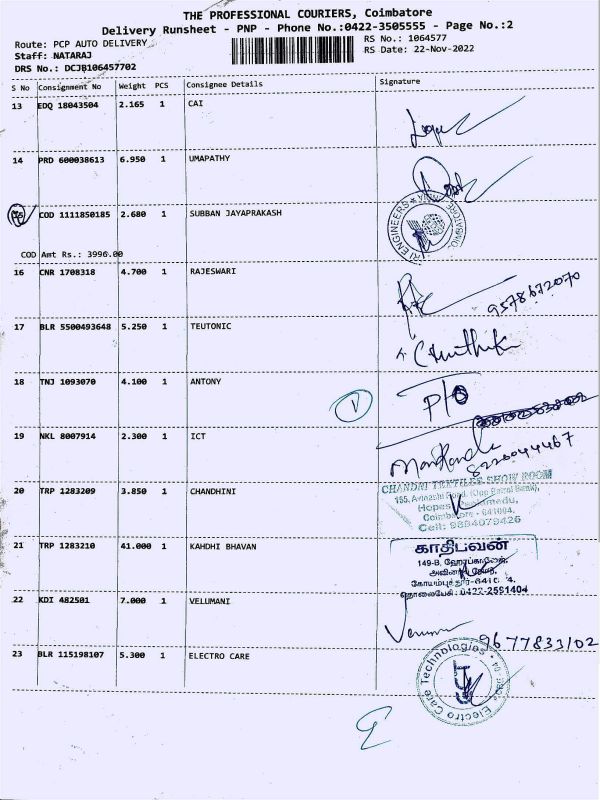 THE PROFESSIONAL COURIERS, Coimbatore
Delivery Runsheet - PNP - Phone No.:0422-3505555 - Page No.:2
Route: PCP AUTO DELIVERY
RS No.: 1064577
Staff: NATARAJ
RS Date: 22-Nov-2022
DRS No.: DCJB106457702
S No Consignment No Weight PCS Consignee Details Signature
13 EDQ 18043504 2.165 1 CAI
14 PRD 600038613 6.950 1 UMAPATHY
15 COD 1111850185 2.680 1 SUBBAN JAYAPRAKASH
COD Amt Rs.: 3996.00
16 CNR 1708318 4.700 1 RAJESWARI
9578672070
17 BLR 5500493648 5.250 1 TEUTONIC
18 TNJ 1093070 4.100 1 ANTONY
P/O
19 NKL 8007914 2.300 1 ICT
8220044467
20 TRP 1283209 3.850 1 CHANDHINI
CHANDNI TEXTILES SHOW ROOM
Coimbatore - 641004.
Cell: 9894079426
21 TRP 1283210 41.000 1 KAHDHI BHAVAN
149-B,
தொலைபேசி : 0422-2591404
22 KDI 482501 7.000 1 VELUMANI
9677833102
23 BLR 115198107 5.300 1 ELECTRO CARE
Electro Care Technologies